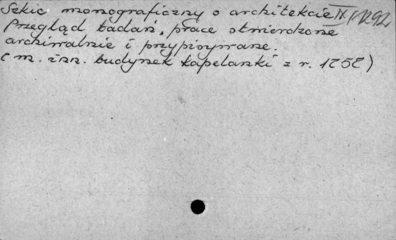 Szkic monograficzny o architekcie IX/1292
Przegląd badań, prace stwierdzone
archiwalnie i przypisywane.
(m. inn. budynek kapelanki z r. 1252)